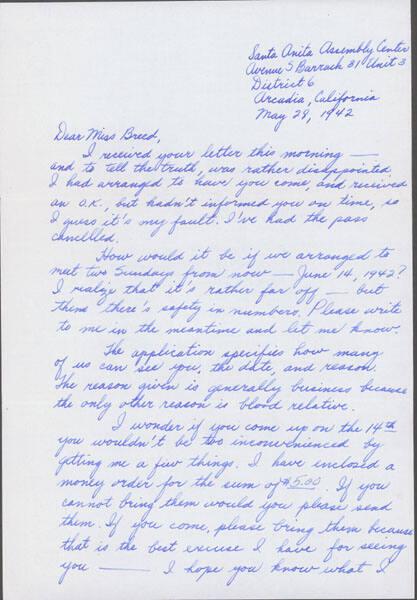 Santa Anita Assembly Center
Avenue S Barrack 31 Unit 3
District 6
Arcadia, California
May 28, 1942
Dear Miss Breed,
I received your letter this morning —
and to tell the truth, was rather disappointed.
I had arranged to have you come, and received
an O.K., but hadn't informed you on time, so
I guess it's my fault. I've had the pass
cancelled.
How would it be if we arranged to
meet two Sundays from now — June 14, 1942?
I realize that it's rather far off — but
then there's safety in numbers. Please write
to me in the meantime and let me know.
The application specifies how many
of us can see you, the date, and reason.
The reason given is generally business because
the only other reason is blood relative.
I wonder if you come up on the 14th
you wouldn't be too inconvenienced by
getting me a few things. I have enclosed a
money order for the sum of $5.00. If you
cannot bring them would you please send
them. If you come, please bring them because
that is the best excuse I have for seeing
you — I hope you know what I